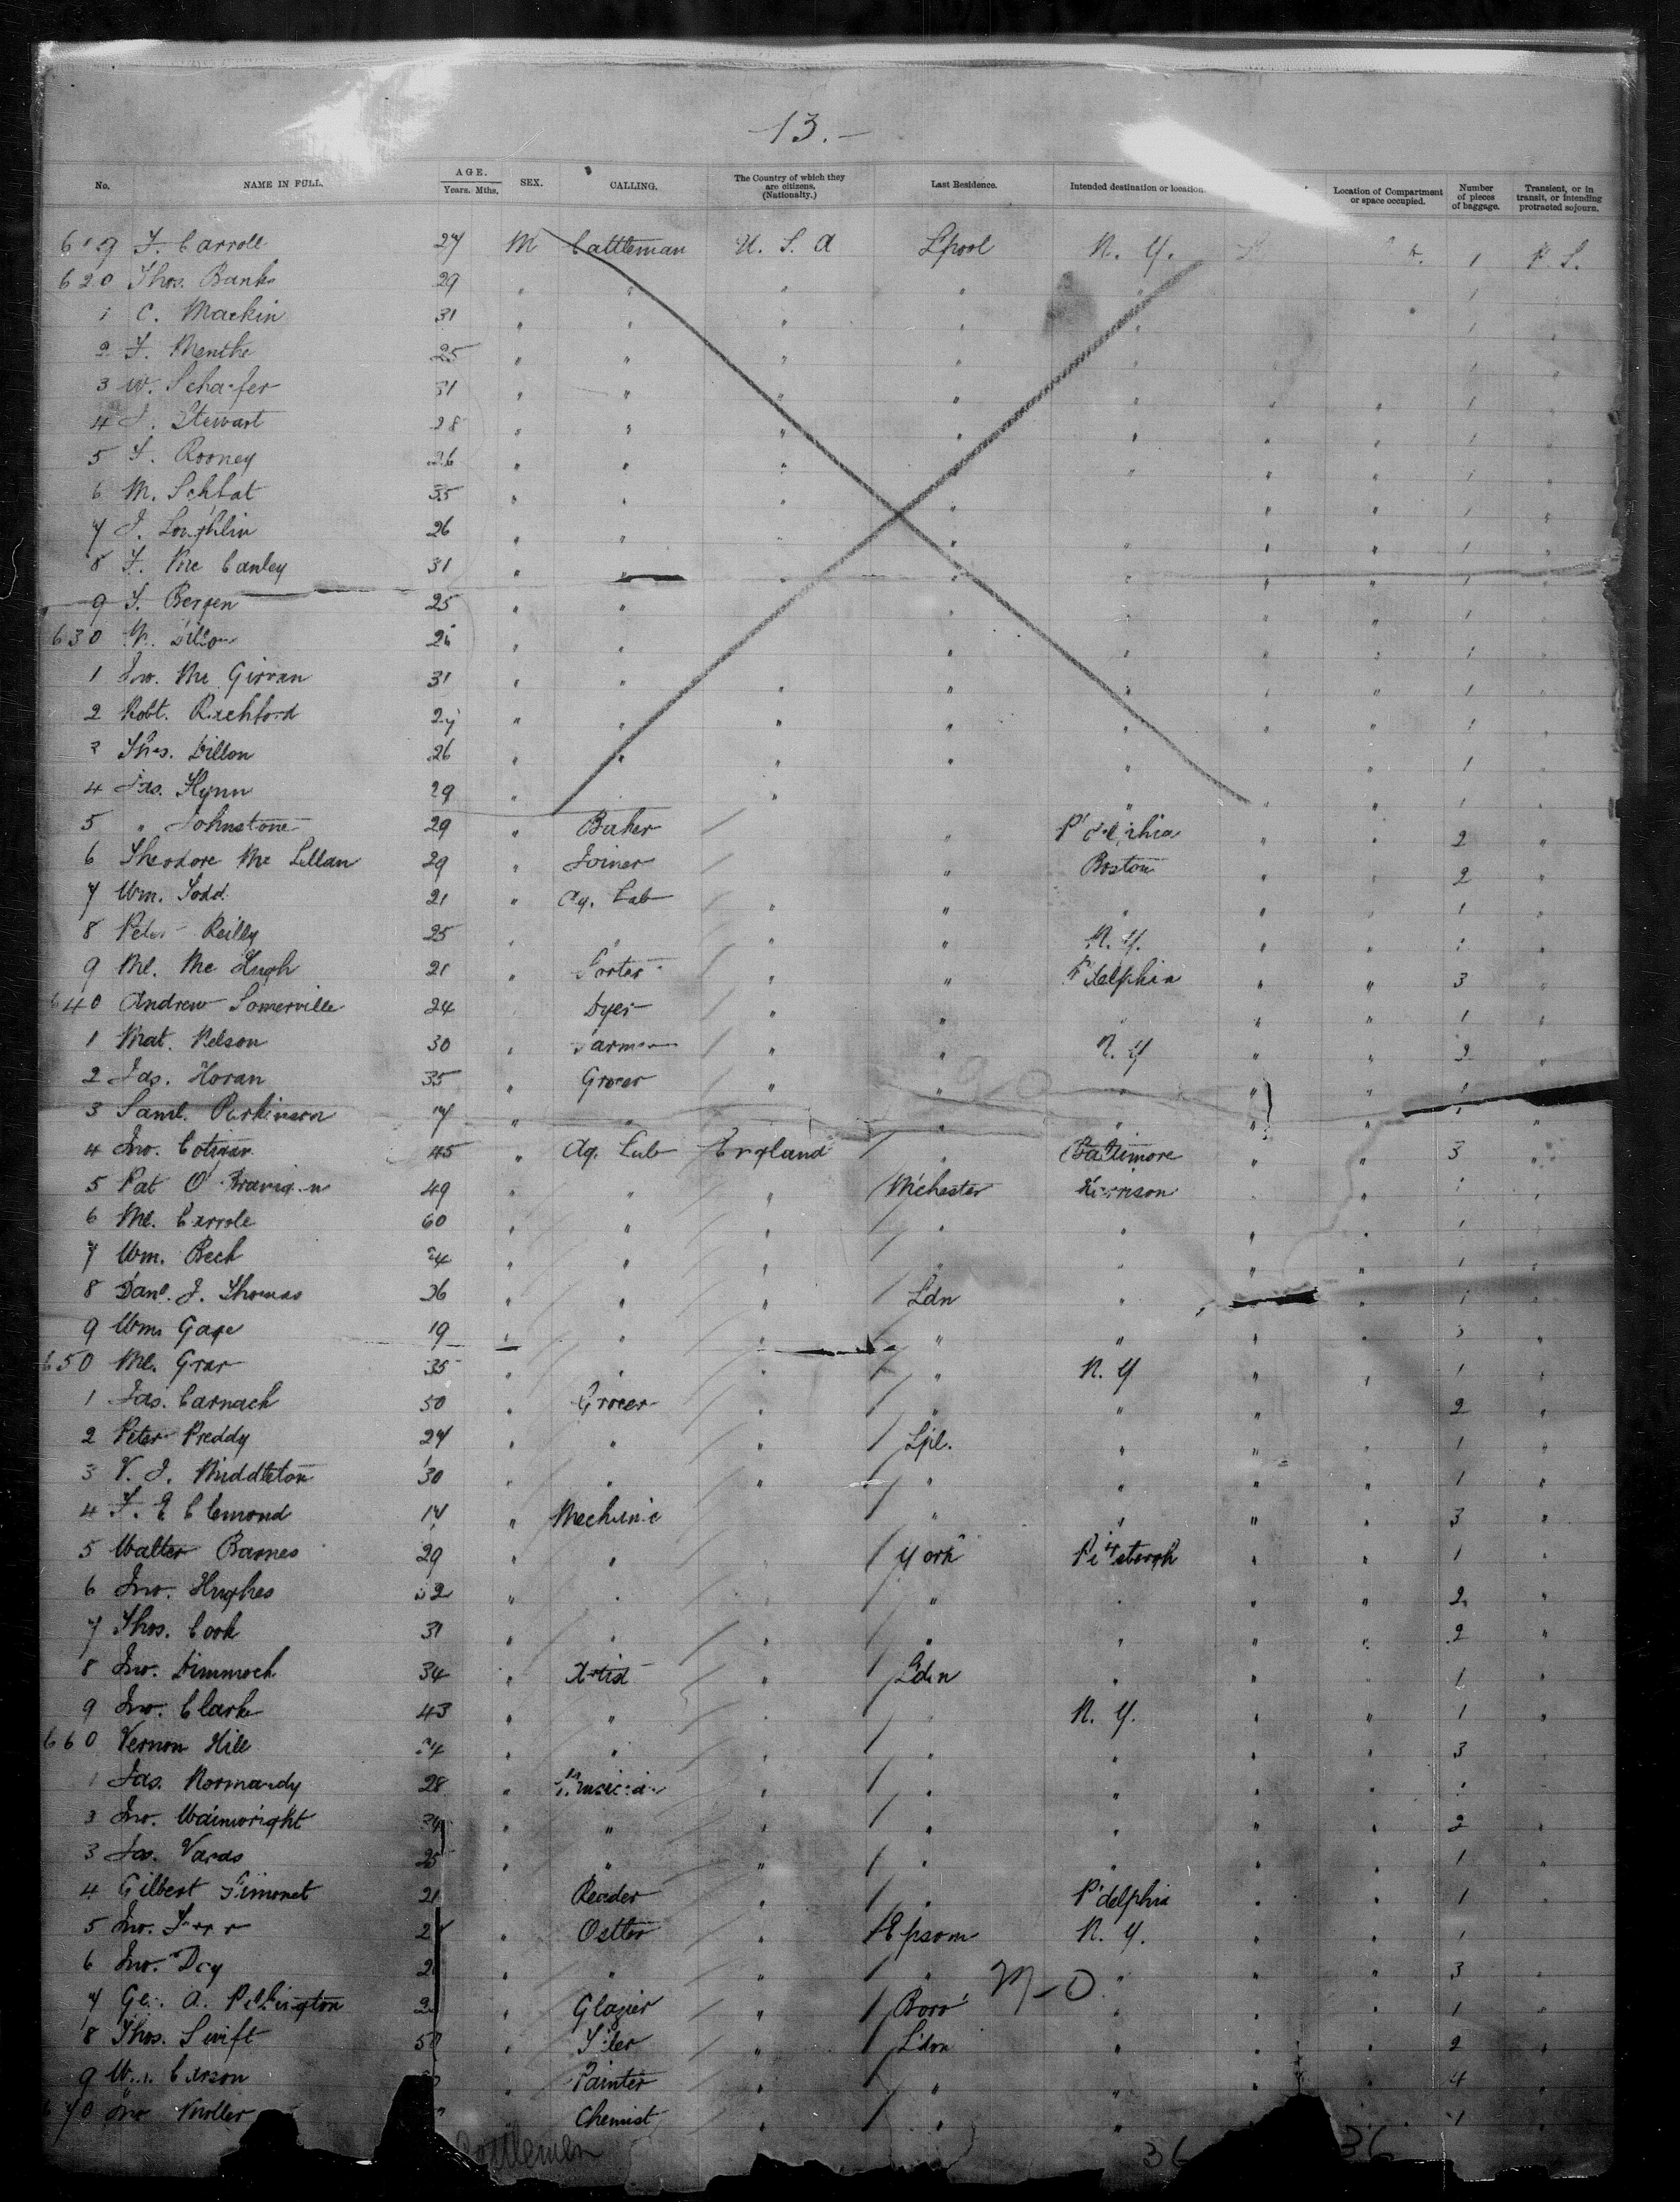 13.-
No. NAME IN FULL. AGE. Years. Mths. SEX. CALLING. The Country of which they are citizens. (Nationalty.) Last Residence. Intended destination or location Location of Compartment or space occupied. Number of pieces of baggage. Transient, or in transit, or intending protracted sojourn.
619 F. Carroll 27 M Cattleman U. S. A L'pool N. Y. 1 P. S.
620 Thos. Banks 29 " " " " " 1
1 C. Mackin 31 " " " " " 1
2 F. Menthe 25 " " " " 1 "
3 W. Schafer 31 " " " " " " " 1 "
4 J. Stewart 28 " " " " " " " 1 "
5 F. Rooney 26 " " " " " " 1 "
6 M. Schlat 35 " " " " " " 1 "
7 J. Loughlin 26 " " " " " " 1 "
8 F. Mc Canley 31 " " " " " " " 1 "
9 T. Bergen 25 " " " " " 1 "
630 Dillon 26 " " " " " " 1 "
1 Jno. Mc Girvan 31 " " " " " " " 1 "
2 Robt. Rochford 27 " " " " " " " 1 "
3 Thos. Dillon 26 " " " " " " 1 "
4 Jas. Flynn 29 " " " " " 1 "
5 " Johnstone 29 " Baker " P'delphia " " 2 "
6 Theodore Mc Lellan 29 " Joiner " Boston " " 2 "
7 Wm. Todd 21 " Ag. Lab " " " " " 1 "
8 Peter Reilly 25 " " " " N. Y. " " 1 "
9 Ml. Mc Hugh 21 " Porter " " P'delphia " " 3 "
640 Andrew Somerville 24 Dyer " " " " " 1 "
1 Mat. Nelson 30 " Farmer " " N. Y " " 2 "
2 Jas. Horan 35 " Grocer " " " " " 1
3 Saml. Parkinson 17 " " " " " " "
4 Jno. Cotigan 45 " Ag. Lab England " Baltimore " " 3 "
5 Pat O 49 " " " M'chester Harrison " " 1 "
6 Ml. Carrole 60 " " " " " " " 1 "
7 Wm. Beck " " " " " " " 1 "
8 Danl. J. Thomas 36 " " " Ldn " " 1 "
9 Wm. Gage 19 " " " " " " " 3 "
650 Ml. 35 " " " " N. Y " " 1 "
1 Jas. Carnach 50 " Grocer " " " " 2 "
2 Peter Preddy 27 " " " Lpl. " " " 1 "
3 V. J. Middleton 30 " " " " " " " 1 "
4 F. E Clemond 17 " Mechanic " " " " 3 "
5 Walter Barnes 29 " " " York Pittsburgh " " 1 "
6 Jno. Hughes 32 " " " " " " 2 "
7 Thos. Cook 31 " " " " " " " 2 "
8 Jno. Dimmock 34 " Artist " Edin " " " 1 "
9 Jno. Clark 43 " " " " N. Y. " " 1 "
660 Vernon Hill " " " " " " " 3 "
1 Jas. Normandy 28 " Musician " " " " " 1 "
3 Jno. Wainwright 34 " " " " " " " 2 "
3 Jas. 25 " " " " " " 1 "
4 Gilbert Simonet 21 Reader " " P'delphia " " 1 "
5 Jno. " Ostler " Epsom N. Y. " " 1
6 Jno. Day " " " " " " " 3 "
M-O
7 Geo. A. Pilkington " Glazier " Boro' " " 1 "
8 Thos. Swift " Tiler " L'don " " " 2 "
9 Wm. Carson " Painter " " " " 4 "
670 Jno Moller Chemist " " " 1 "
Cattlemen 36 36